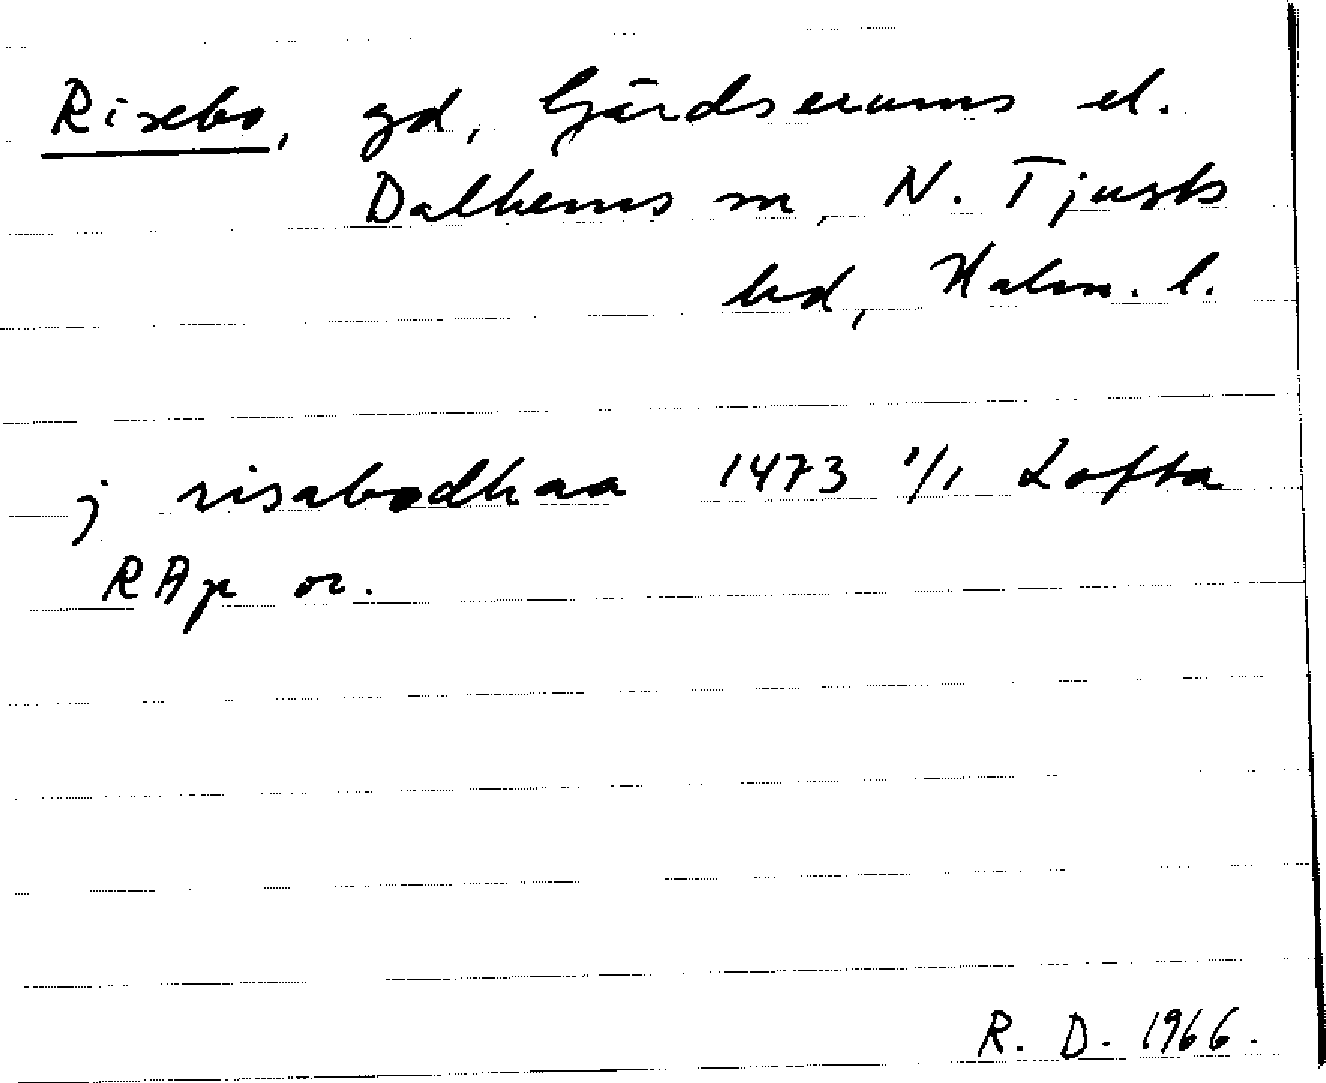 Risebo, gd, Gärdserums el.
Dalhems sn, N. Tjusts
hd, Kalm. l.
j risabodhaa 1473 1/1 Lofta
RAp or.
R. D. 1966.